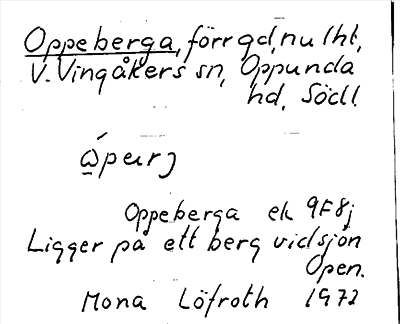 Oppeberga, förr gd, nu lht,
V. Vingåkers sn, Oppunda
hd, Södl.
Oppeberga ek 9F8j
Ligger på ett berg vid sjön
Open.
Mona Löfroth 1972